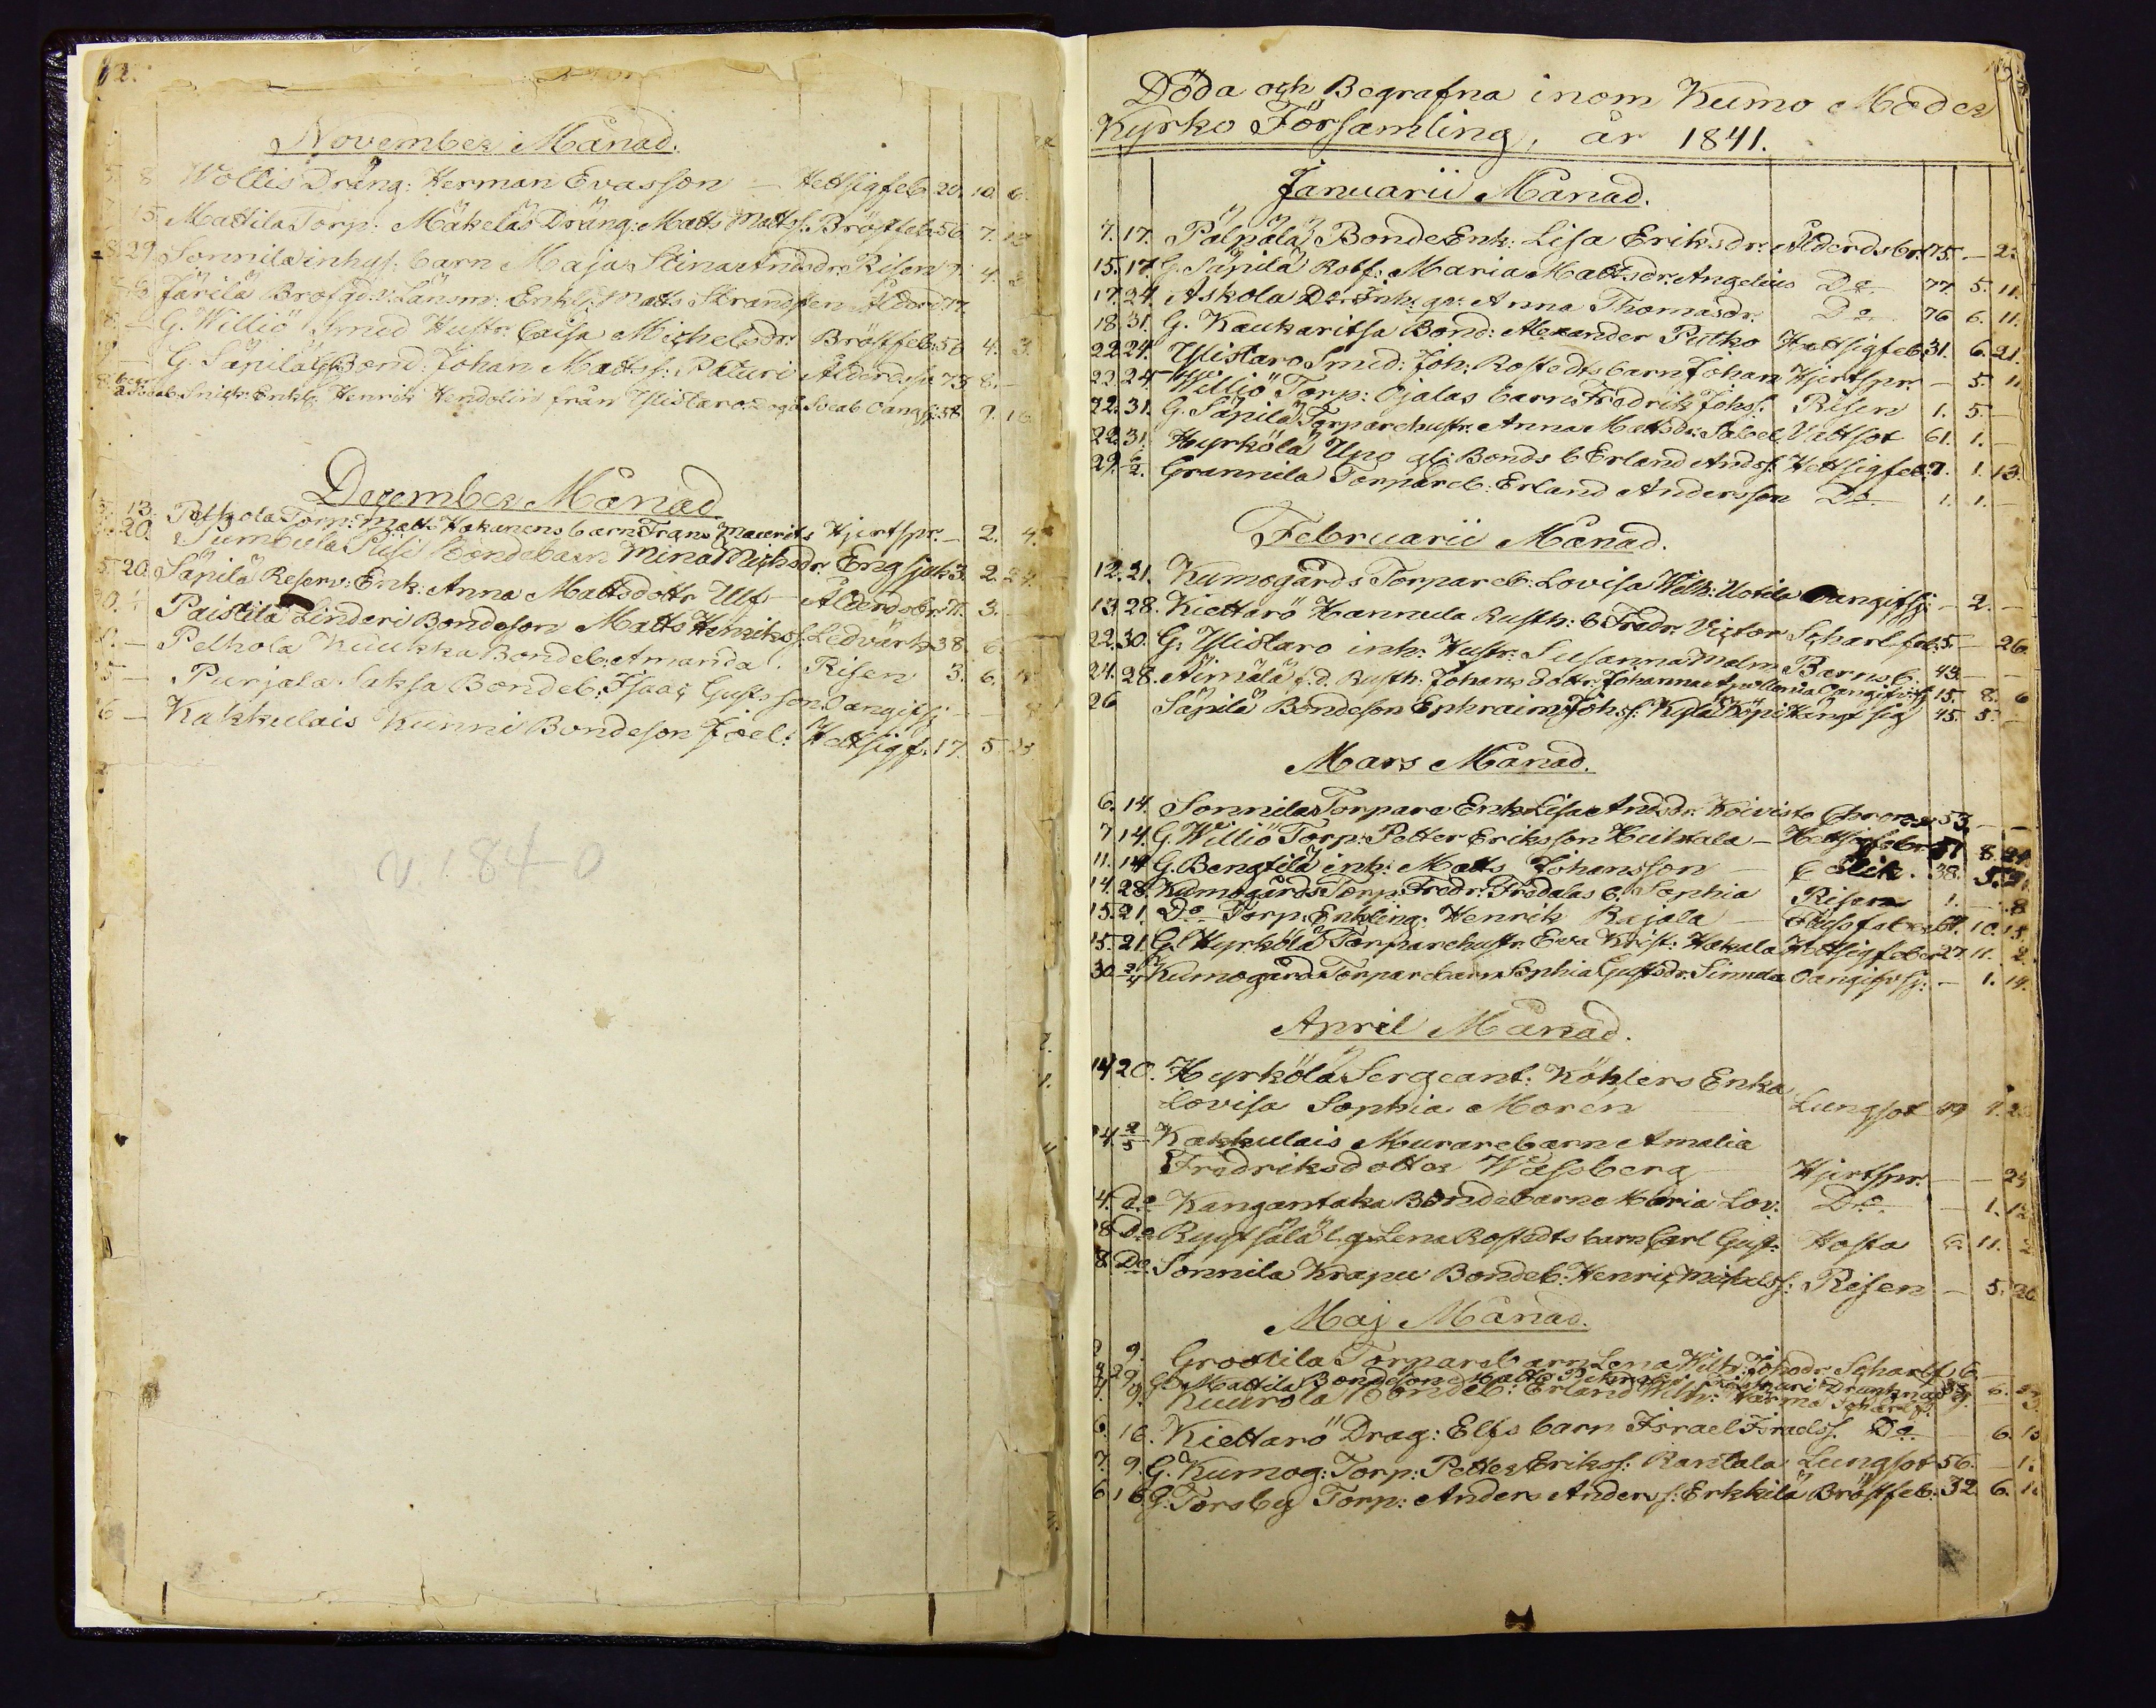 12.
November Månad.
8 Wollis Dräng: Herman Evasson — Hetsigfeb. 20. 10. 6.
15. Mattila Torp: Mäkeläs Dräng: Matts Matss. Bröstfeb. 50. 7. 12
29. Sonnila inhys: barn Maja Stina Andsdr. Risen 4.
Järilä Brofgd: Länsm: Enkl: Matts Strandsten Ålderd 77.
— G. Williö Smed Hustr: Caisa Michelsdr: Bröstfeb. 50 4. 3.
— G. Säpilä Bond: Johan Matss: Paturi Ålderdss. 73 8. —
Snick: Enkl: Henrik Hendolin från Ylistaro Oangif. 58.
December Månad
13. Pelhola Torp: Matts Hakanens barn Frans Maurits Hjertspr. — 2. 4.
20. Sumbula Susi Bondebarn Mina Michsdr. Eng sjuk. 3. 2. 24.
5. 20. Säpilä Reserv: Enk: Anna Mattsdottr Ulf — Ålderdsbr. 71. 3.
Paistila Linderi Bondeson Matts Henrikss: Ledvärk 38. 6.
— Pelhola Kuukka Bondeb: Amanda. Risen 3. 6.
5 — Purjala Saksa Bondeb: Isaac Gustsson Oangifsj — 8
6 — Kakkulais Kunni Bondeson Joel: Hetsigf. 17. 5. 23
v. 1840
Döda och Begrafna inom Kumo Moder
Kyrko Församling, år 1841.
Januarii Månad.
7. 17. Pälpälä Bonde Enk: Lisa Eriksdr: Ålderdsbr. 75. — 2.
15. 17. G. Säpilä Rotf: Maria Mattsdr. Angelius Do 77. 5. 11.
17. 24. Askola Do Inh: qv: Anna Thomasdr. Do 76 6. 11.
18. 31. G. Kaukaritsa Bond: Alexander Putko Hettsigfeb. 31. 6. 21.
22. 24. Ylistaro Smed: Joh: Rostedts barn Johan Hjertspr. — 5. 11
22. 24 Williö Torp: Ojalas barn Fredrik Johss. Risen 1. 5. —
22. 31. G. Säpilä Torparehustr. Anna Mattsdr. Sabel Vattsot 61. 1. —
22. 31. Hyrkölä Upo gl: Bonds b Erland Andss: Hettsigfeb. 7. 1. 13.
29. 6/2. Grannila Torpareb: Erland Andersson Do 1. 1. —
Februarii Månad.
12. 21. Kumogårds Torpareb: Lovisa Wilh: Uotila Oangifsj: — 2. —
13. 28. Kiettarö Hannula Rusth: b Fredr. Victor Scharlfeb. 5. — 26.
22. 30. G. Ylistaro inh: Hustr: Susanna Malm Barnsb. 43. — —
24. 28. Äimälä f.d. Rusth: Johans dottr. Johanna Apollonia Oangifv: sj. 15. 8. 6
26 Säpilä Bondeson Ephraim Johss: Köpi Hängt sig 45. 5. —
Mars Månad.
6. 14. Sonnilas Torpare Enk: Lisa Andsdr. Koivisto 53. — —
7 14. G. Williö Torp: Petter Eriksson Huhtala — Hettsigfeber 51 8. 24.
11. 14 G. Bengtilä inh: Matts Johansson — Colik. 38. 5. 21.
14. 28. Kumogårds Torp: Fredr: Fredalas b. Sophia Risen 1. — 8
15. 21. Do Torp: Enkling: Henrik Rajala — 64. 10. 15.
15. 21. G. Hyrkölä Torparehustr. Eva Krist: Hakala Hettsigfeber 27. 11. 2.
30. 2/4 Kumogårds Torparebarn Sophia Gustsdr. Sinnda Oangifvsj: — 1. 14.
April Månad.
14 20. Hyrkölä Sergeant: Köhlers Enka
Lovisa Sophia Morén — Lungsot 49 1. 23
4. 2/5 Kakkulais Murarebarn Amalia
Fredriksdotter Wässberg — Hjertspr. — — 25
4. Do Kangantaka Bondebarn Maria Lov: Do. — 1. 12
8 Do Ruytsälä l. q. Lena Rostedts barn Carl Gust: Hosta 6. 11. 2
8. Do Sonnila Krapu Bondeb: Henric Mikalss: Risen — 5. 26
Maj Månad.
2 9. Grootila Torparebarn Lena Wilh: Johsdr. Scharlf. 6. —
29. G. Mattila Bondeson Matts Drunknad 33. 6.
9. Kuurola Bondeb: Erland Wilh: Scharlf. 9. — 3.
6. 16. Kiettarö Drag: Elfs barn Israel Israelss. Do. — 6. 13
7. 9. G. Kumog: Torp: Petter Erikss: Rantala Lungsot 56. — 1.
6 16 G. Torsby Torp: Anders Anderss: Erkkilä Bröstfeb. 32. 6. 1.